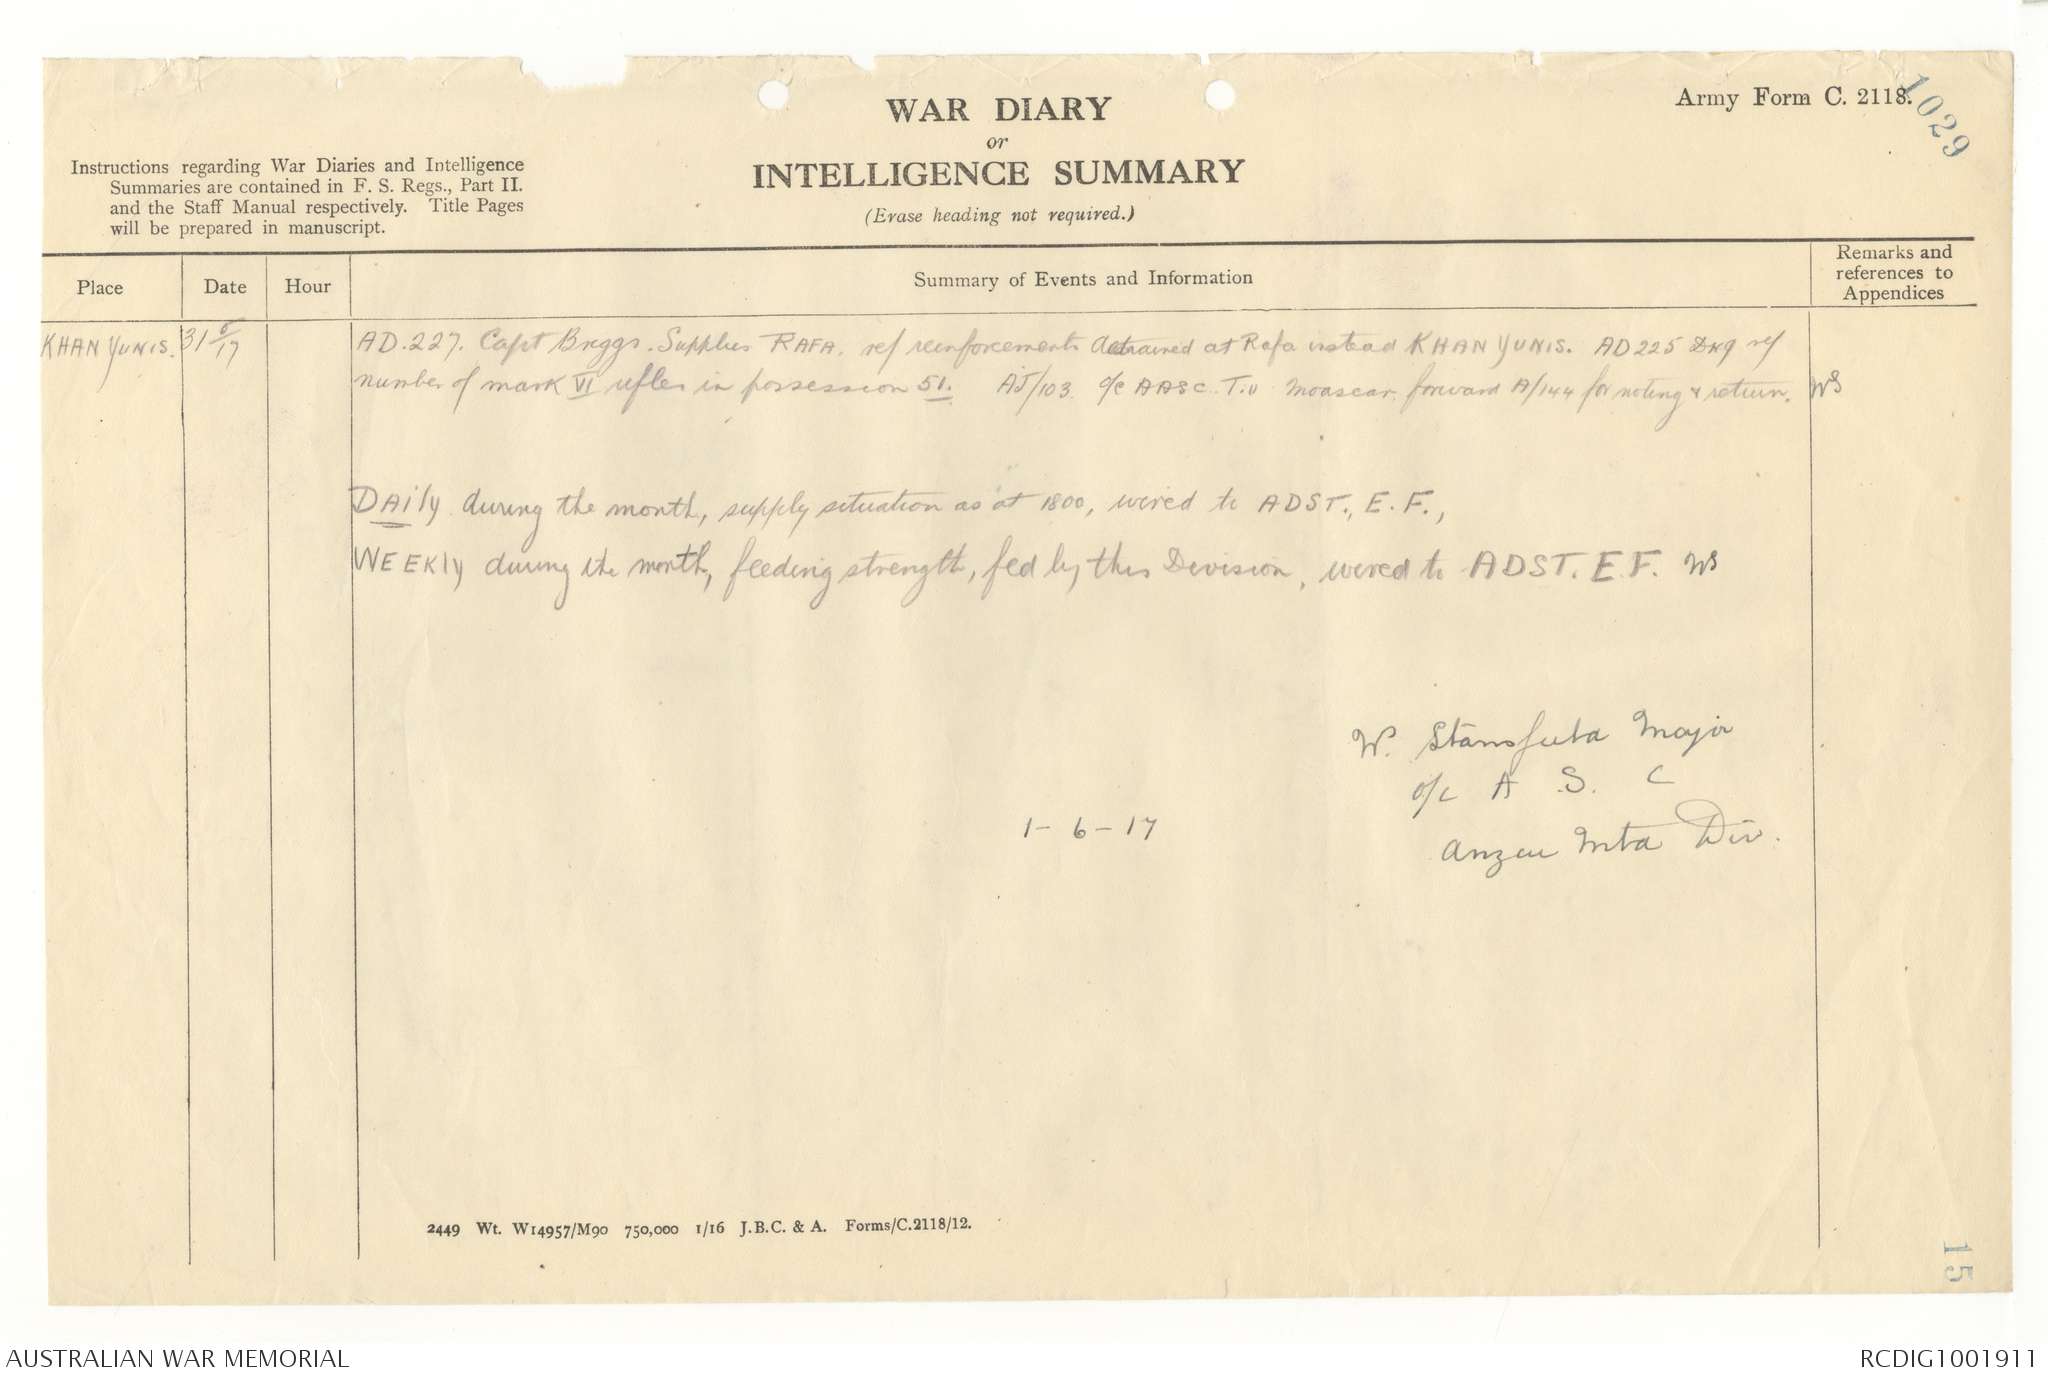 WAR DIARY
or
INTELLIGENCE SUMMARY
(Erase heading not required.)
Army Form C. 2118.
1029
Instructions regarding War Diaries and Intelligence
Summaries are contained in F. S. Regs., Part II.
and the Staff Manual respectively. Title Pages
will be prepared in manuscript.
Place
Date
Hour
Summary of Events and Information
Remarks and
references to
Appendices
KHAN YUNIS. 31 5/17 AD.227. Capt Briggs. Supplies RAFA. ref reinforcements detrained at Rafa instead KHAN YUNIS. AD 225 DHQ ref
number of mark VI rifles in possession 51. AJ/103. o/c AASC. T.D Moascar, forward A/144 for noting & return. WS
DAily during the month, supply situation as at 1800, wired to ADST., E. F.,
WEEKly during the month, feeding strength, fed by this Division, wired to ADST. E.F. WS
W. Stansfield Major
o/c A. S. C
1-6-17
Anzac Mtd Div.
2449 Wt. W14957/M90 750,000 1/16 J.B.C. & A. Forms/C.2118/12.
15
AUSTRALIAN WAR MEMORIAL
RCDIG1001911